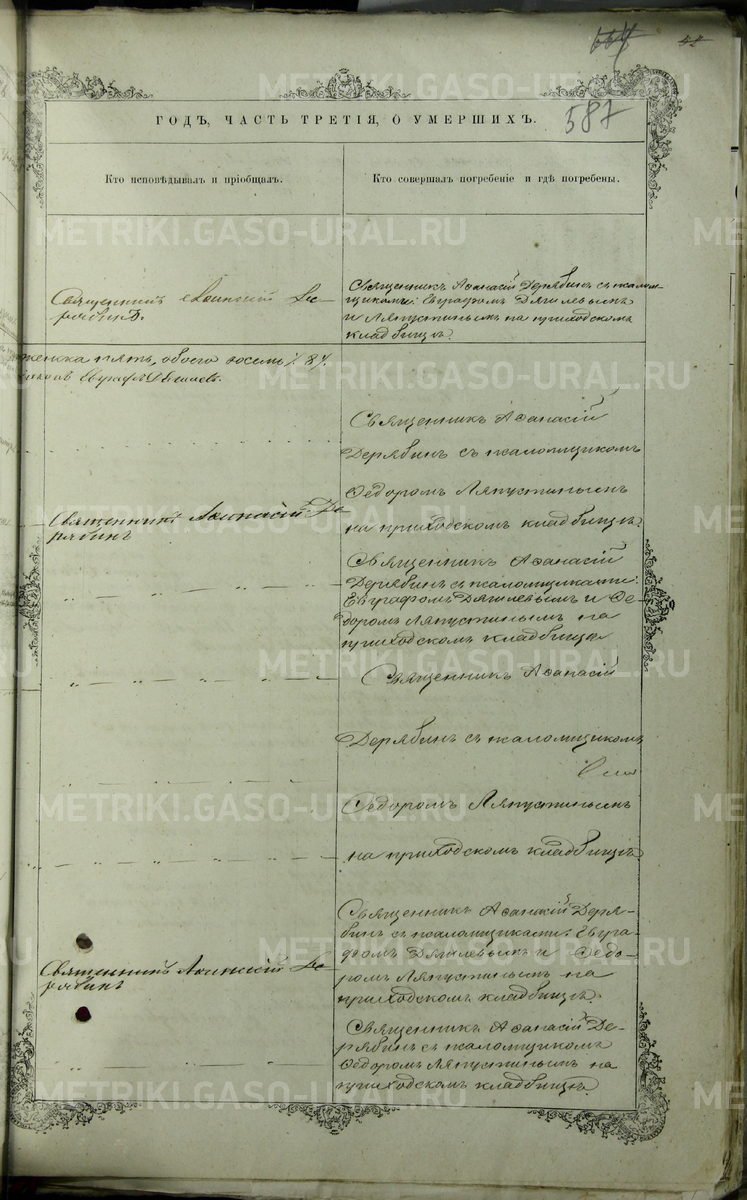 587
ГОДЪ, ЧАСТЬ ТРЕТІЯ, О УМЕРШИХЪ.
Кто исповѣдывалъ и пріобщалъ.
Кто совершалъ погребеніе и гдѣ погребены.
Священникъ Аѳанасій Де-
рябинъ.
Священникъ Аѳанасій Дерябинъ съ псалом-
щиками: Евграфомъ Дягилевымъ
и Ляпустинымъ на приходскомъ
кладбищѣ.
женска пять, обоего восемь /. 8 /.
Евграфъ Дягилевъ.
Священникъ Аѳанасій
Дерябинъ съ псаломщикомъ
Ѳедоромъ Ляпустинымъ
на приходскомъ кладбищѣ.
Священникъ Аѳанасій Де-
рябинъ
Священникъ Аѳанасій
Дерябинъ съ псаломщиками:
Евграфомъ Дягилевымъ и Ѳе-
доромъ Ляпустинымъ на
приходскомъ кладбищѣ
Священникъ Аѳанасій
Дерябинъ съ псаломщикомъ
Ѳедоромъ Ляпустинымъ
на приходскомъ кладбищѣ
Священникъ Аѳанасій Де-
рябинъ
Священникъ Аѳанасій Деря-
бинъ съ псаломщиками: Евгра-
фомъ Дягилевымъ и Ѳедо-
ромъ Ляпустинымъ на
приходскомъ кладбищѣ.
Священникъ Аѳанасій Де-
рябинъ съ псаломщикомъ
Ѳедоромъ Ляпустинымъ на
приходскомъ кладбищѣ.
METRIKI.GASO-URAL.RU